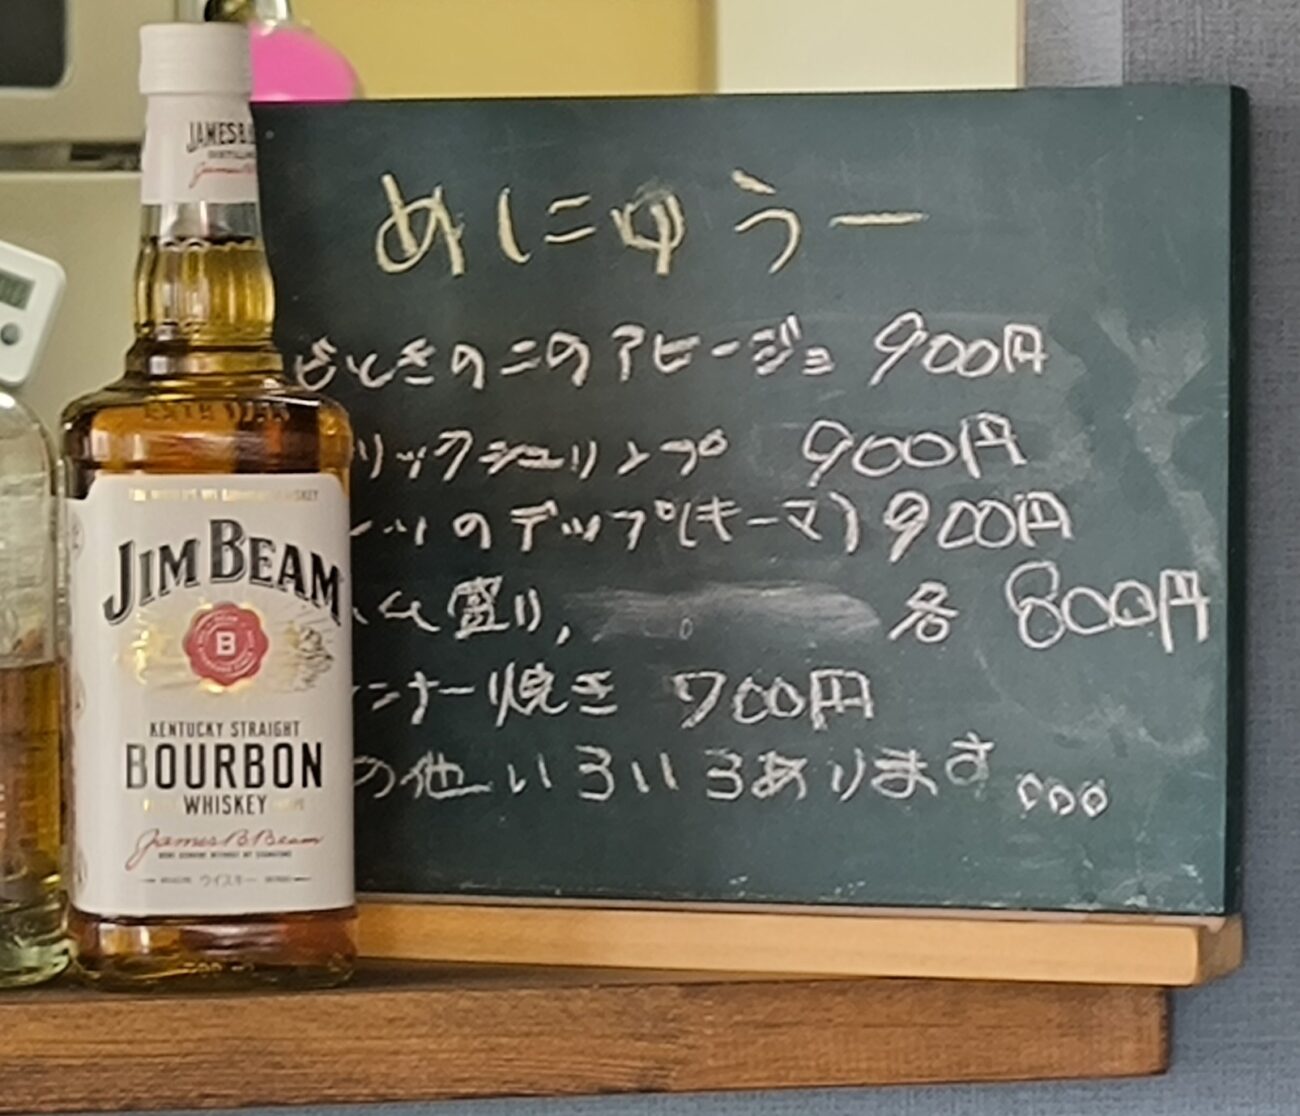 JAMES B.
めにゅうー
えびときのこのアヒージョ 900円
リックシュリンプ 900円
のディップ(キーマ) 900円
ム盛り, 各 800円
ンナー焼き 700円
の他いろいろあります。。。
JIM BEAM
B
KENTUCKY STRAIGHT
BOURBON
WHISKEY
James B. Beam
ウイスキー